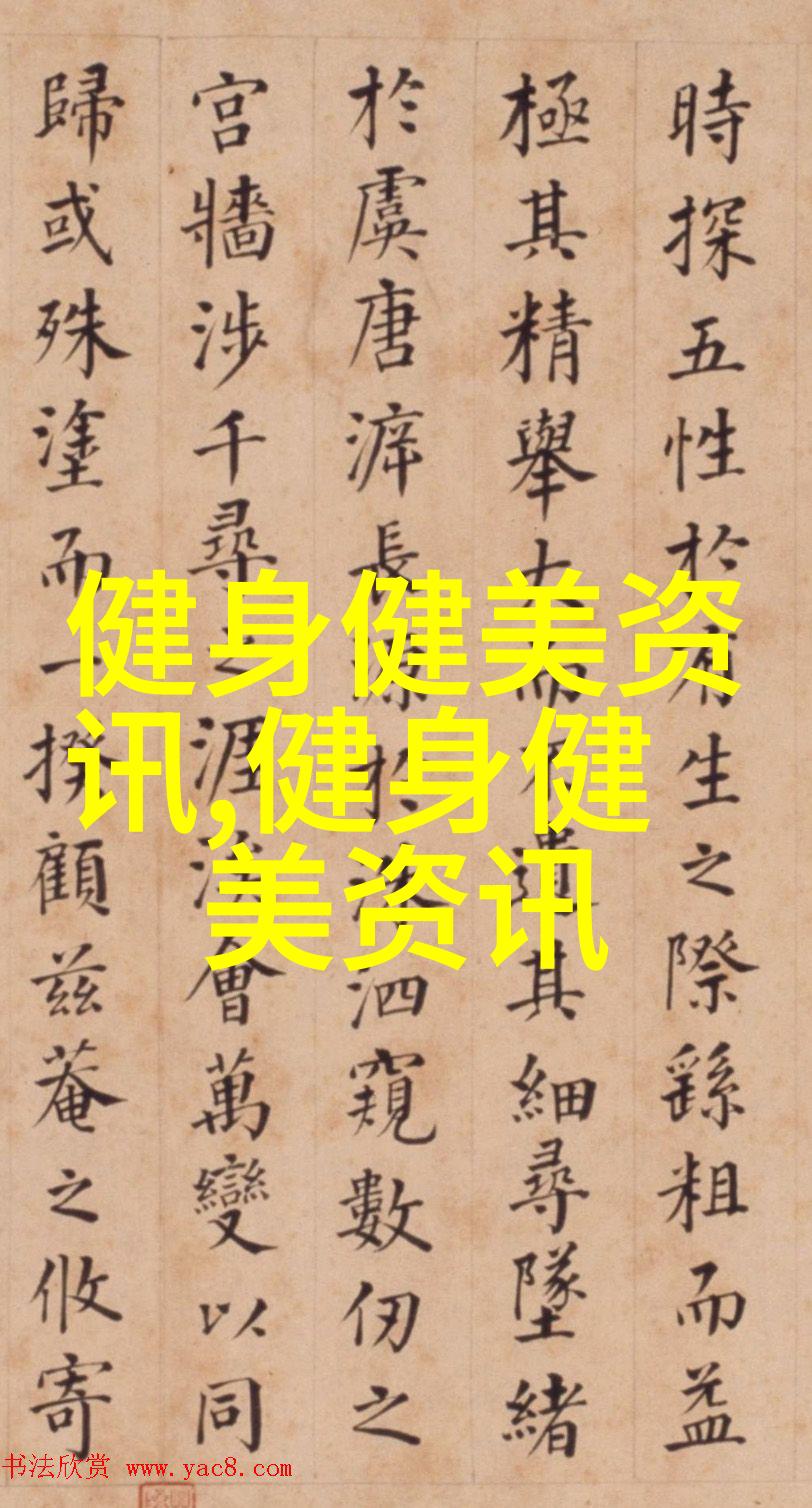 時探五性於有生之際繇粗而益
極其精舉大而不遺其細尋墜緒
於虞唐㴑長源於洙泗窺數仞之
宮牆涉千尋之涯涘會萬變以同
歸或殊塗而一揆顧茲菴之攸寄
健身健美资
讯,健身健
美资讯
书法欣赏 www.yac8.com